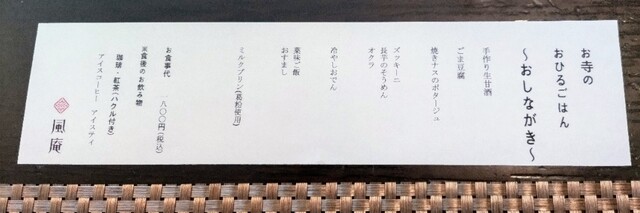 お寺の
おひるごはん
～おしながき～
手作り生甘酒
ごま豆腐
焼きナスのポタージュ
ズッキーニ
長芋のそうめん
オクラ
冷やしおでん
薬味ご飯
おすまし
ミルクプリン(葛粉使用)
お食事代 一八〇〇円(税込)
※食後のお飲み物
珈琲・紅茶(ハクル付き)
アイスコーヒー アイスティ
風庵